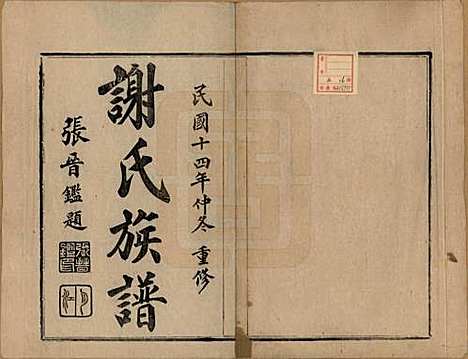 民國十四年仲冬重修
謝氏族譜
張晉鑑題